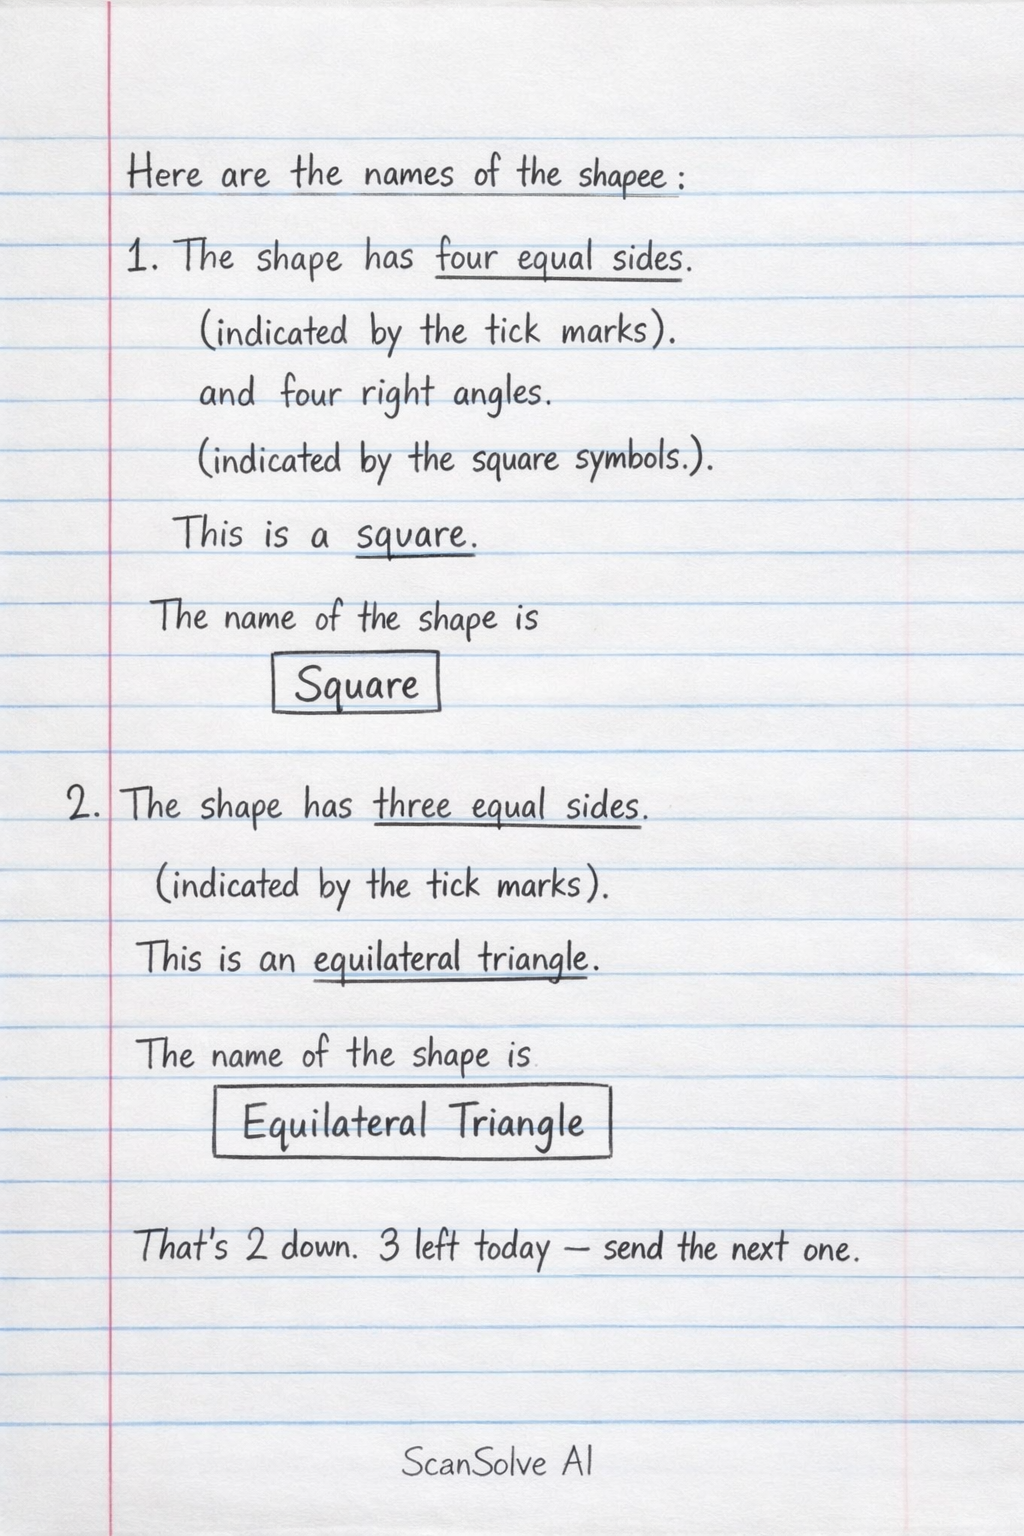 Here are the names of the shapee :
1. The shape has four equal sides.
(indicated by the tick marks).
and four right angles.
(indicated by the square symbols.).
This is a square.
The name of the shape is
Square
2. The shape has three equal sides.
(indicated by the tick marks).
This is an equilateral triangle.
The name of the shape is
Equilateral Triangle
That's 2 down. 3 left today — send the next one.
ScanSolve AI